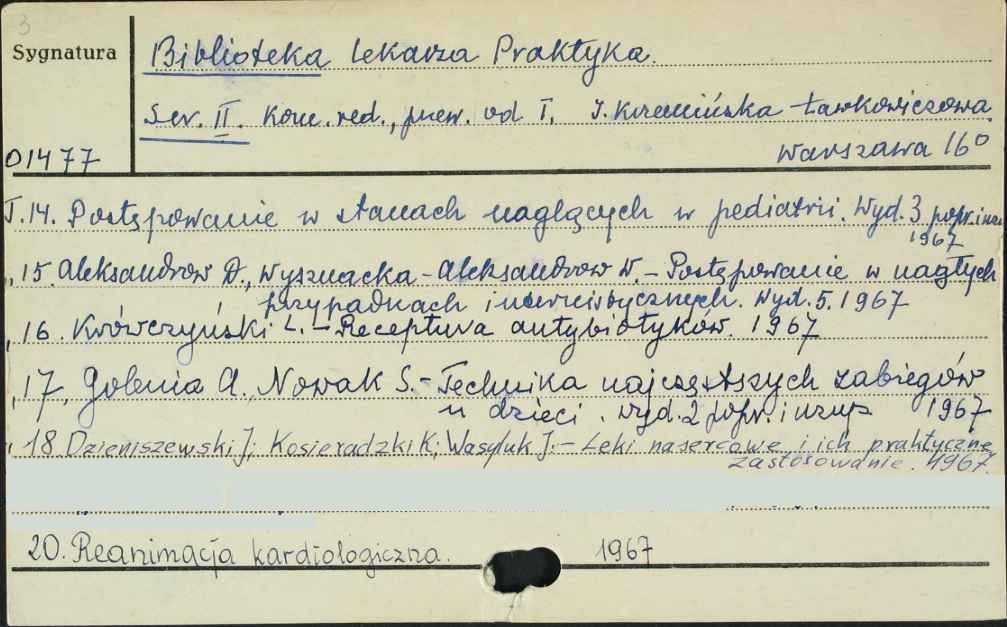 3
Sygnatura
Biblioteka Lekarza Praktyka.
Ser. II. Kom. red., przew. od T. I. Krzemińska-Ławkowiczowa
Warszawa 16⁰
01477
T.14. Postępowanie w stanach naglących w pediatrii. Wyd. 3 popr. i uz.
1967
15. Aleksandrow D., Wysznacka-Aleksandrow W. - Postępowanie w nagłych
przypadkach internistycznych. Wyd. 5. 1967
16. Krówczyński L. - Receptura antybiotyków. 1967
17. Golenia A., Nowak S. - Technika najczęstszych zabiegów
u dzieci. Wyd. 2 popr. i uzup 1967
18 Dzieniszewski J; Kosieradzki K; Wasyluk J. - Leki nasercowe i ich praktyczne
zastosowanie. 1967.
20. Reanimacja kardiologiczna. 1967